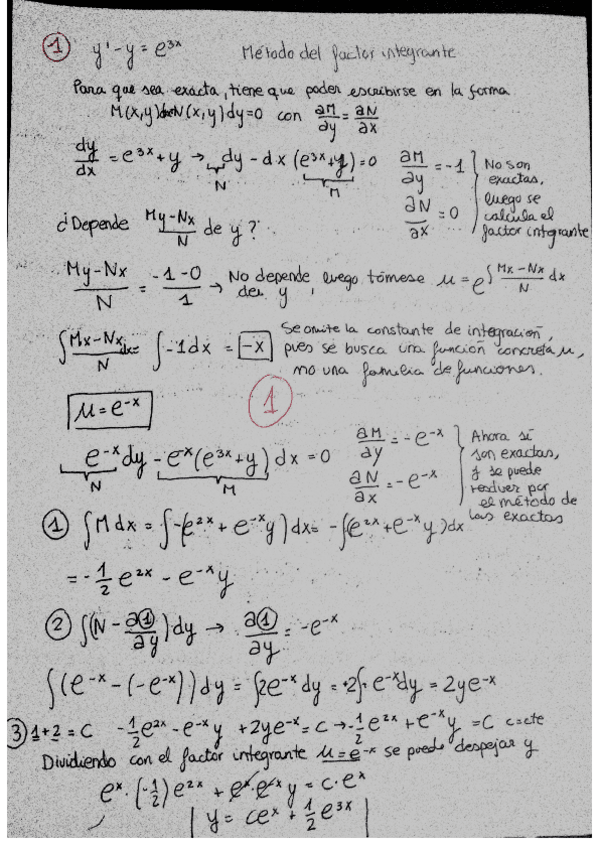 1 y' - y = e^{3x} Método del factor integrante
Para que sea exacta, tiene que poder escribirse en la forma
M(x,y)dx+N(x,y)dy=0 con ∂M/∂y = ∂N/∂x
dy/dx = e^{3x}+y → dy - dx(e^{3x}+y)=0 ∂M/∂y = -1 No son exactas, luego se calcula el factor integrante
N M ∂N/∂x = 0
¿Depende My-Nx/N de y?
My-Nx/N = -1-0/1 → No depende de y, luego tómese μ = e^{∫ Mx-Nx/N dx}
∫ Mx-Nx/N dx = ∫ -1dx = -x Se omite la constante de integración, pues se busca una función concreta μ, no una familia de funciones.
μ = e^{-x} 1
e^{-x}dy - e^{-x}(e^{3x}+y)dx = 0 ∂M/∂y = -e^{-x} Ahora sí son exactas, y se puede resolver por el método de las exactas
N M ∂N/∂x = -e^{-x}
① ∫Mdx = ∫-(e^{2x} + e^{-x}y)dx = -∫(e^{2x}+e^{-x}y)dx
= -1/2 e^{2x} - e^{-x}y
② ∫(N - ∂①/∂y)dy → ∂①/∂y = -e^{-x}
∫(e^{-x} - (-e^{-x}))dy = ∫2e^{-x}dy = 2∫e^{-x}dy = 2ye^{-x}
3) 1+2 = C -1/2 e^{2x} - e^{-x}y + 2ye^{-x} = C → -1/2 e^{2x} + e^{-x}y = C C=cte
Dividiendo con el factor integrante μ=e^{-x} se puede despejar y
e^x · (-1/2)e^{2x} + e^x · e^{-x} y = C · e^x
y = Ce^x + 1/2 e^{3x}